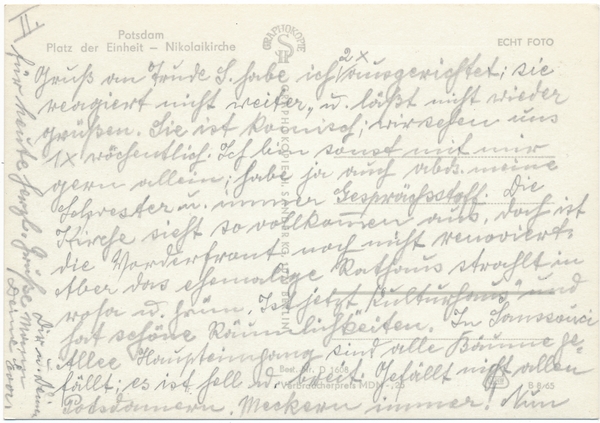 III
Potsdam
Platz der Einheit – Nikolaikirche
GRAPHOKOPIE
ECHT FOTO
Gruß an Trude S. habe ich 2x ausgerichtet; sie
reagiert nicht weiter, u. läßt nicht wieder
grüßen. Sie ist komisch; wir sehen uns
1x wöchentlich. Ich bin sonst mit mir
gern allein; habe ja auch abds. meine
Schwester u. immer Gesprächsstoff. Die
Kirche sieht so vollkommen aus, doch ist
die Vorderfront noch nicht renoviert.
Aber das ehemalige Rathaus strahlt in
rosa u. grün. Ist jetzt "Kulturhaus" und
hat schöne Räumlichkeiten. In Sanssouci
Allee Haupteingang sind alle Bäume ge-
fällt; es ist hell u. breit. Gefällt nicht allen
Potsdamern. Meckern immer! Nun
für heute herzl. Grüße
Dir u. Deinem Mann
Deine
Best. Nr. D 1608
Verbraucherpreis MDN
B 8/65